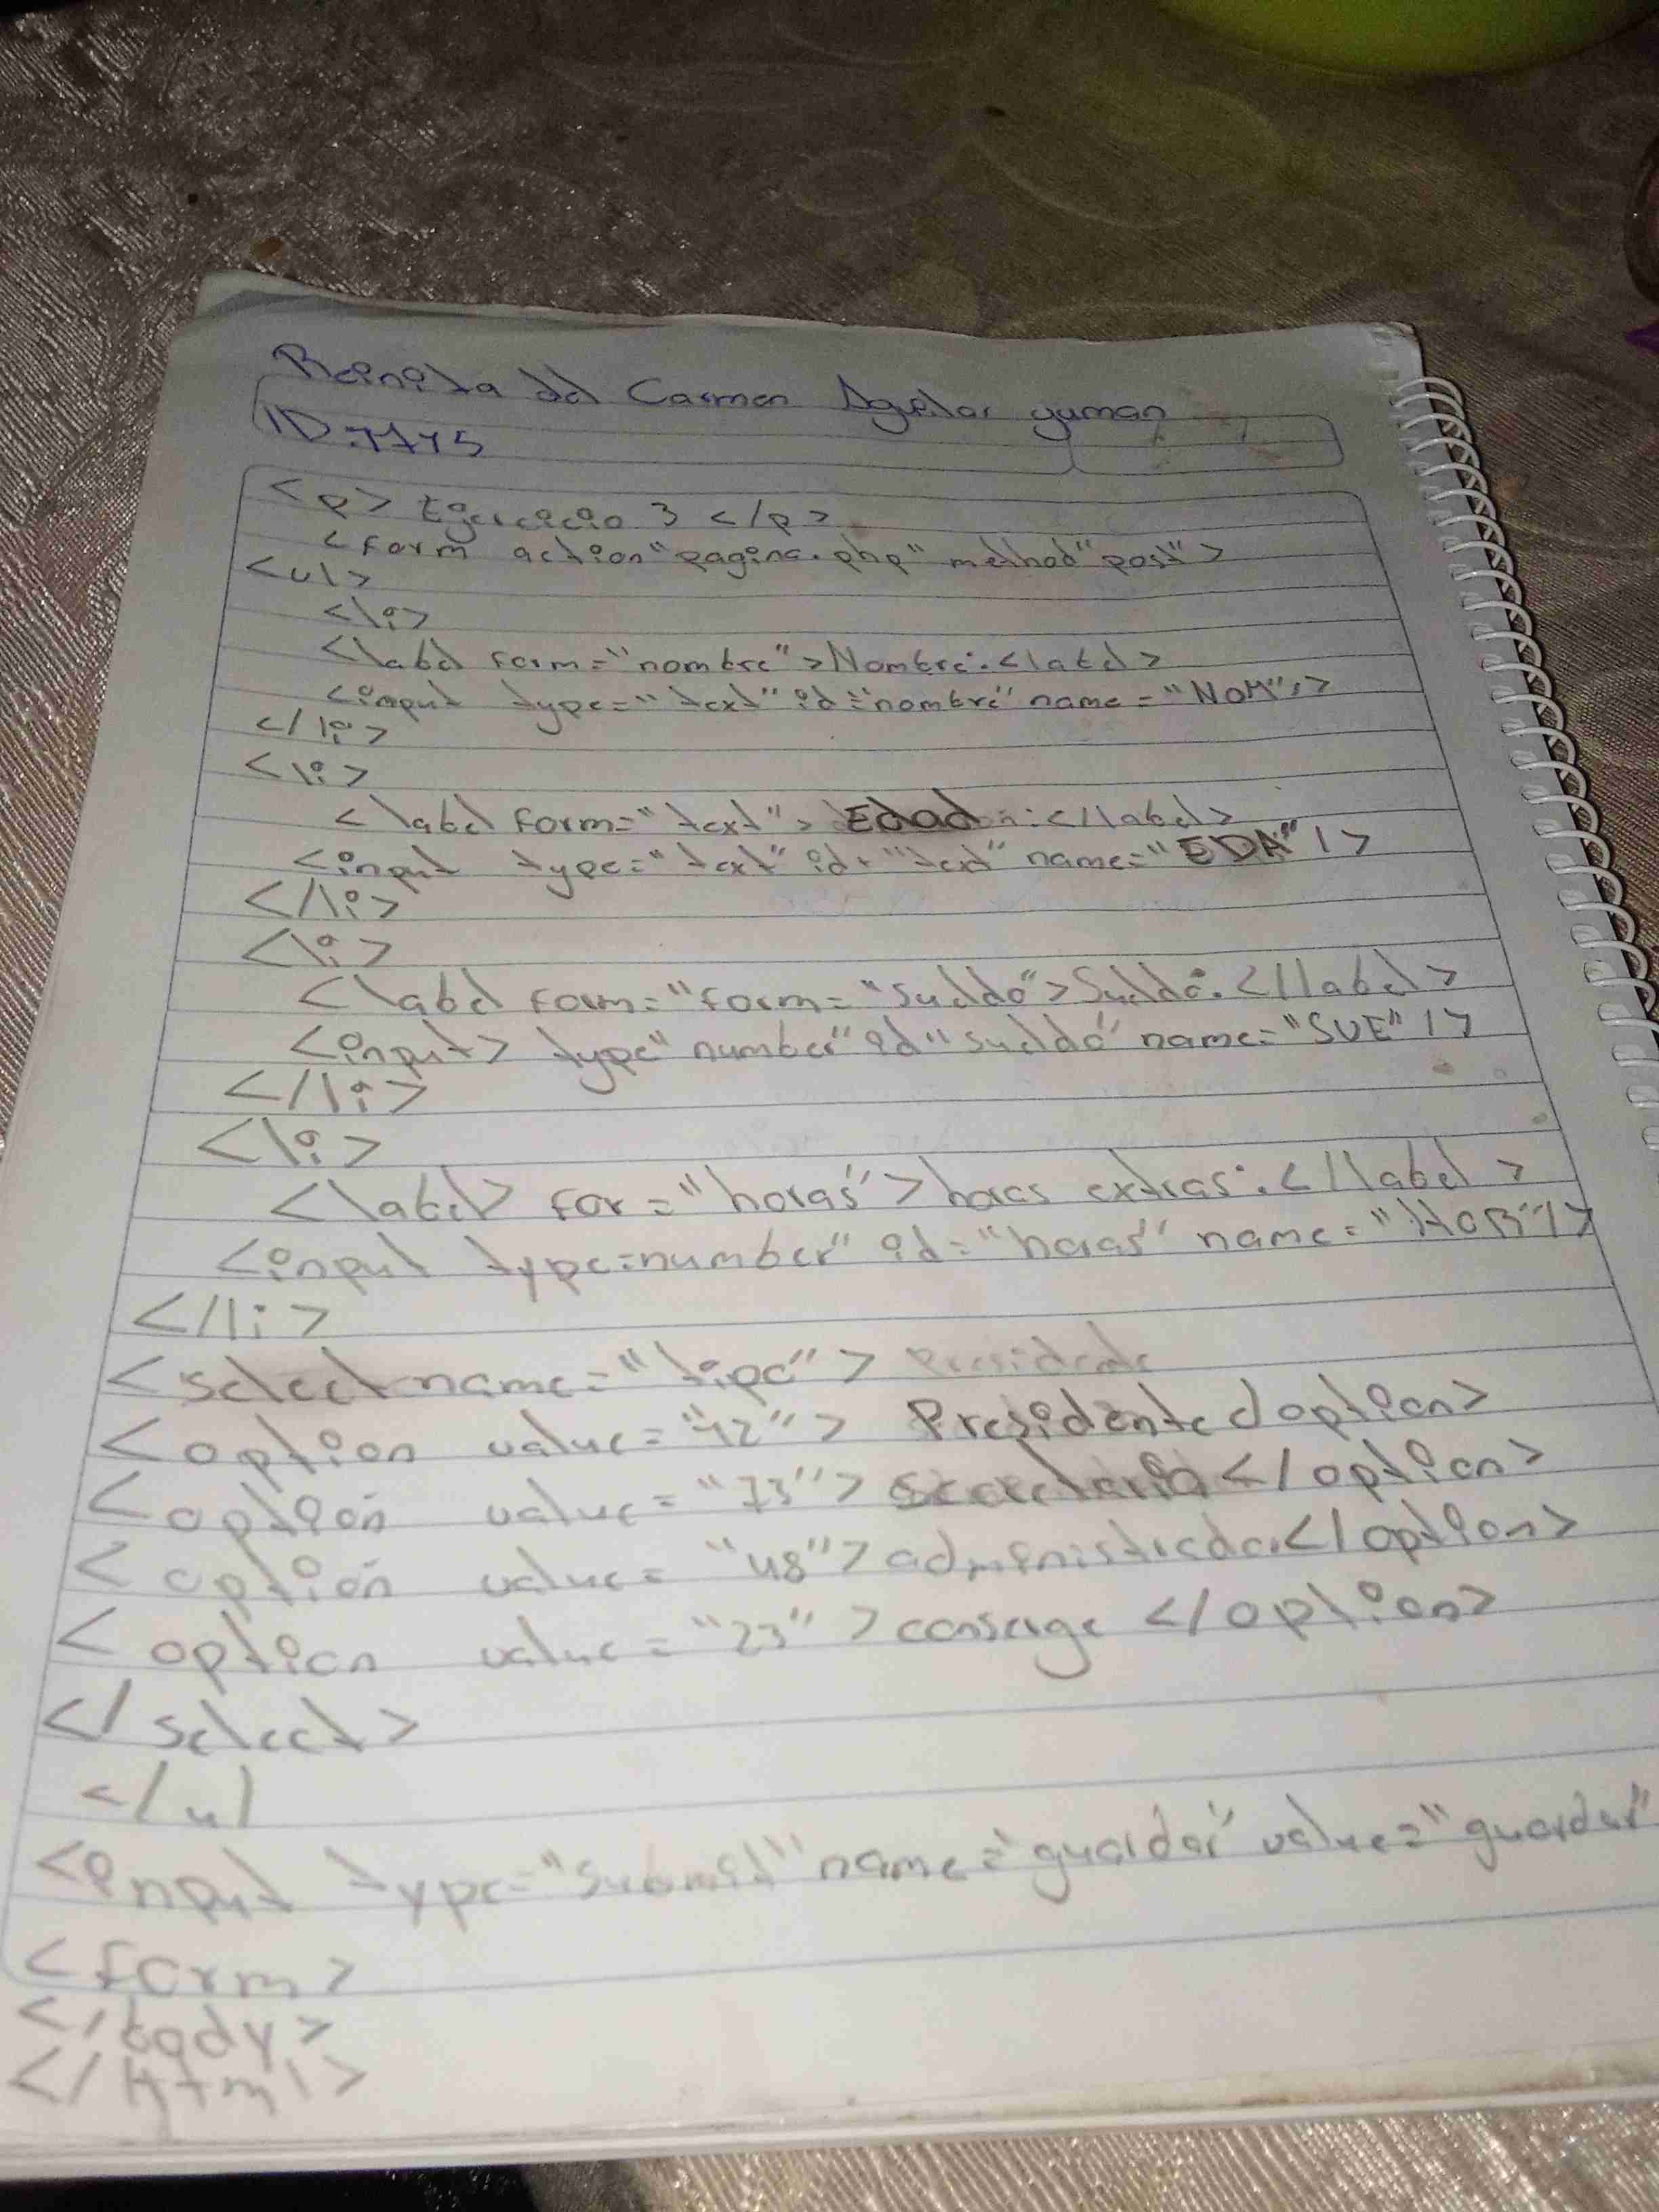 Reinita del Carmen Aguilar yuman
ID:7775
<p> Egercicio 3 </p>
<form action"pagina.php" method"post">
<ul>
<li>
<label form="nombre">Nombre:<label>
<input type="text" id="nombre" name="NOM"/>
</li>
<li>
<label form="text"> Edad :</label>
<input type="text" id="text" name="EDA"/>
</li>
<li>
<label form="form="Sueldo">Sueldo:</label>
<input> type"number"id"sueldo" name="SUE"/>
</li>
<li>
<label> for="horas">horas extras:</label>
<input type=number" id="horas" name="HOR"/>
</li>
<select name="tipo"> Presidente
<option value="12"> Presidente</option>
<option value="73"> Secretaria</option>
<option value="48">administrador</option>
<option value="23">conserge </option>
</select>
</ul
<input type="Submit" name="guardar" value="guardar"
<form>
</body>
</html>